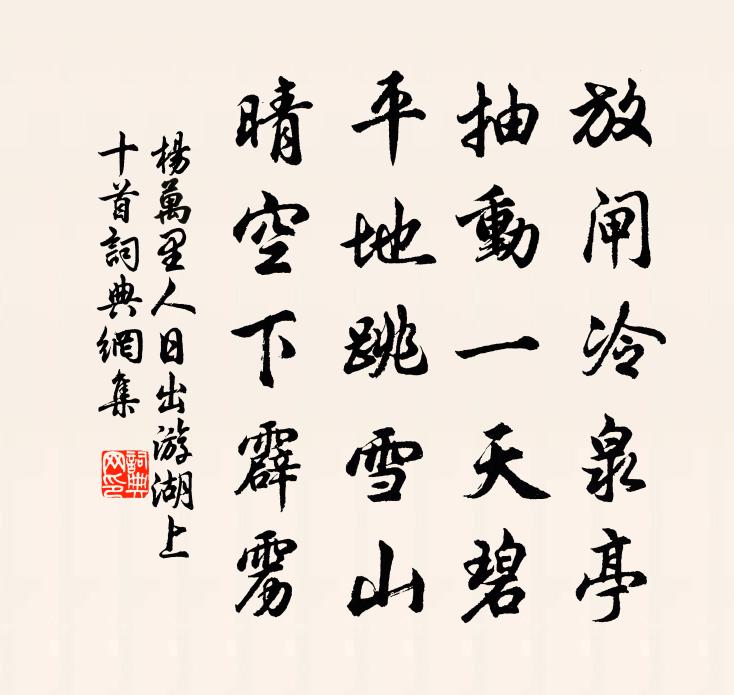 放闸冷泉亭
抽動一天碧
平地跳雪山
晴空下霹雳
楊萬里人日出游湖上
十首詞典網集
詞典
网印